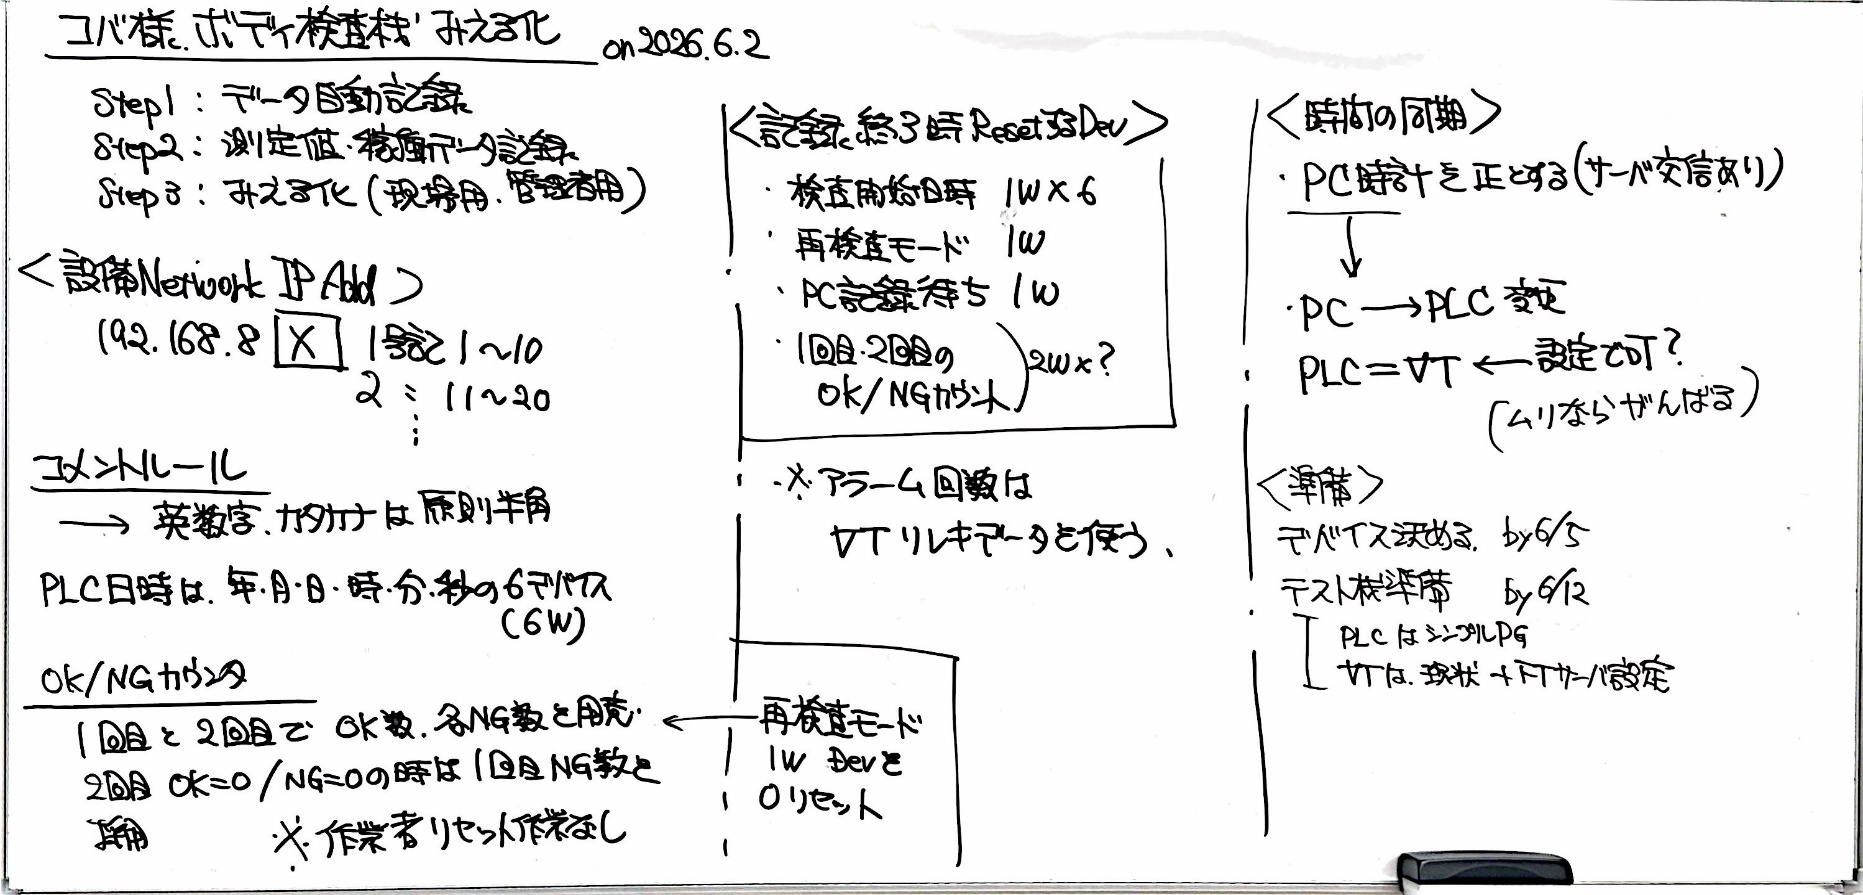 コバ様 ボディ検査機 みえる化 on 2026.6.2
Step1：データ自動記録
Step2：測定値・稼働データ記録
Step3：みえる化（現場用・管理者用）
＜設備Network IP Add＞
192.168.8 X 1号記 1～10
2 : 11～20
⋮
コメントルール
→ 英数字、カタカナは原則半角
PLC日時は、年・月・日・時・分・秒の6デバイス
(6W)
OK/NGカウンタ
1回目と2回目で OK数、各NG数を用意
2回目 OK=0/NG=0の時は1回目NG数を
採用 ※作業者リセット作業なし
＜記録終了時ResetするDev＞
・検査開始日時 1W×6
・再検査モード 1W
・PC記録待ち 1W
・1回目・2回目の
OK/NGカウント) 2W×?
※アラーム回数は
VTリレキデータを使う、
← 再検査モード
1W Devを
0リセット
＜時間の同期＞
・PC時計を正とする(サーバ交信あり)
↓
・PC→PLC 変更
PLC=VT ← 設定で可?
(ムリならがんばる)
＜準備＞
デバイス決める by6/5
テスト機準備 by6/12
PLCはシンプルPG
VTは、現状+FTサーバ設定